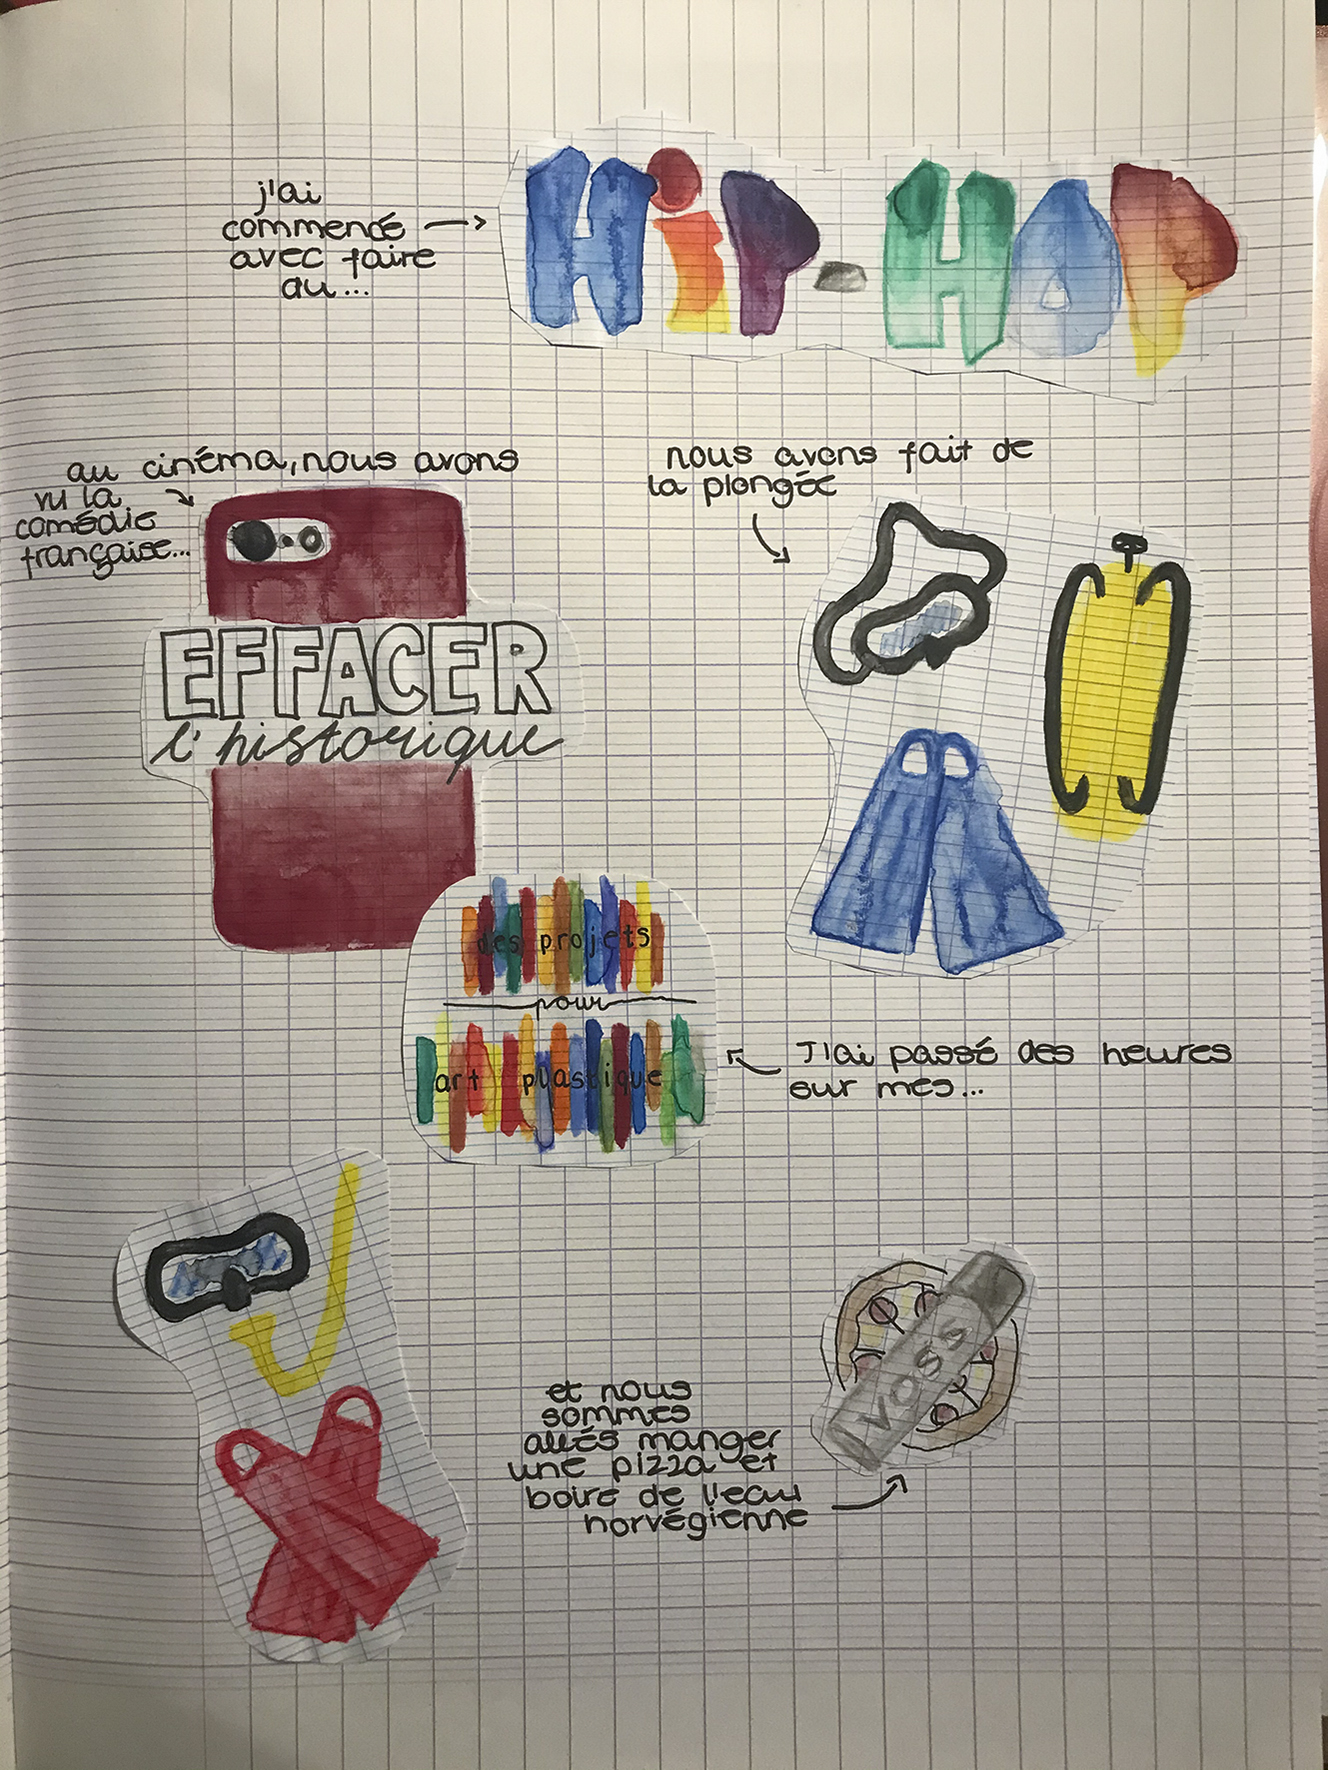 j'ai
commencé
avec faire
au...
HiP-HOP
au cinéma, nous avons
vu la
comédie
française...
EFFACER
l'historique
nous avons fait de
la plongée
des projets
pour
art plastique
J'ai passé des heures
sur mes...
et nous
sommes
allés manger
une pizza et
boire de l'eau
norvégienne
VOSS